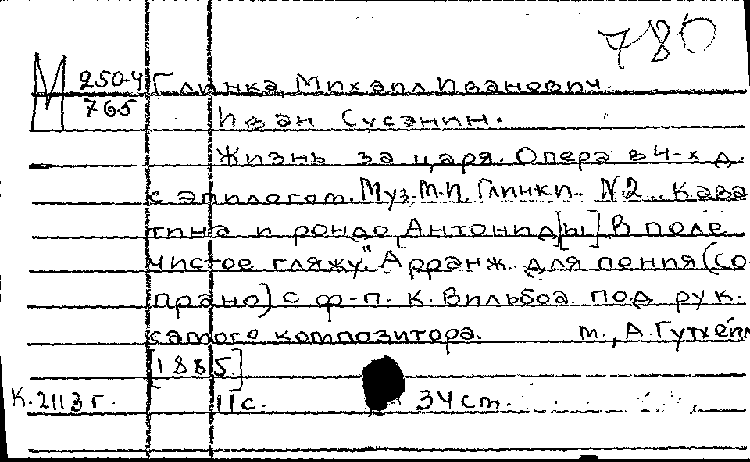 780
М 250-4 Глинка, Михаил Иванович.
765
Иван Сусанин.
Жизнь за царя. Опера в 4-х д.
с эпилогом. Муз. М.И. Глинки. N2. Кава
тина и рондо Антонид[ы] „В поле
чистое гляжу" Арранж. для пения (со
прано) с ф-п. К. Вильбоа под рук.
самого композитора. М., А. Гутхейл
[1885]
К. 2113 г. 11 с. 34 см.